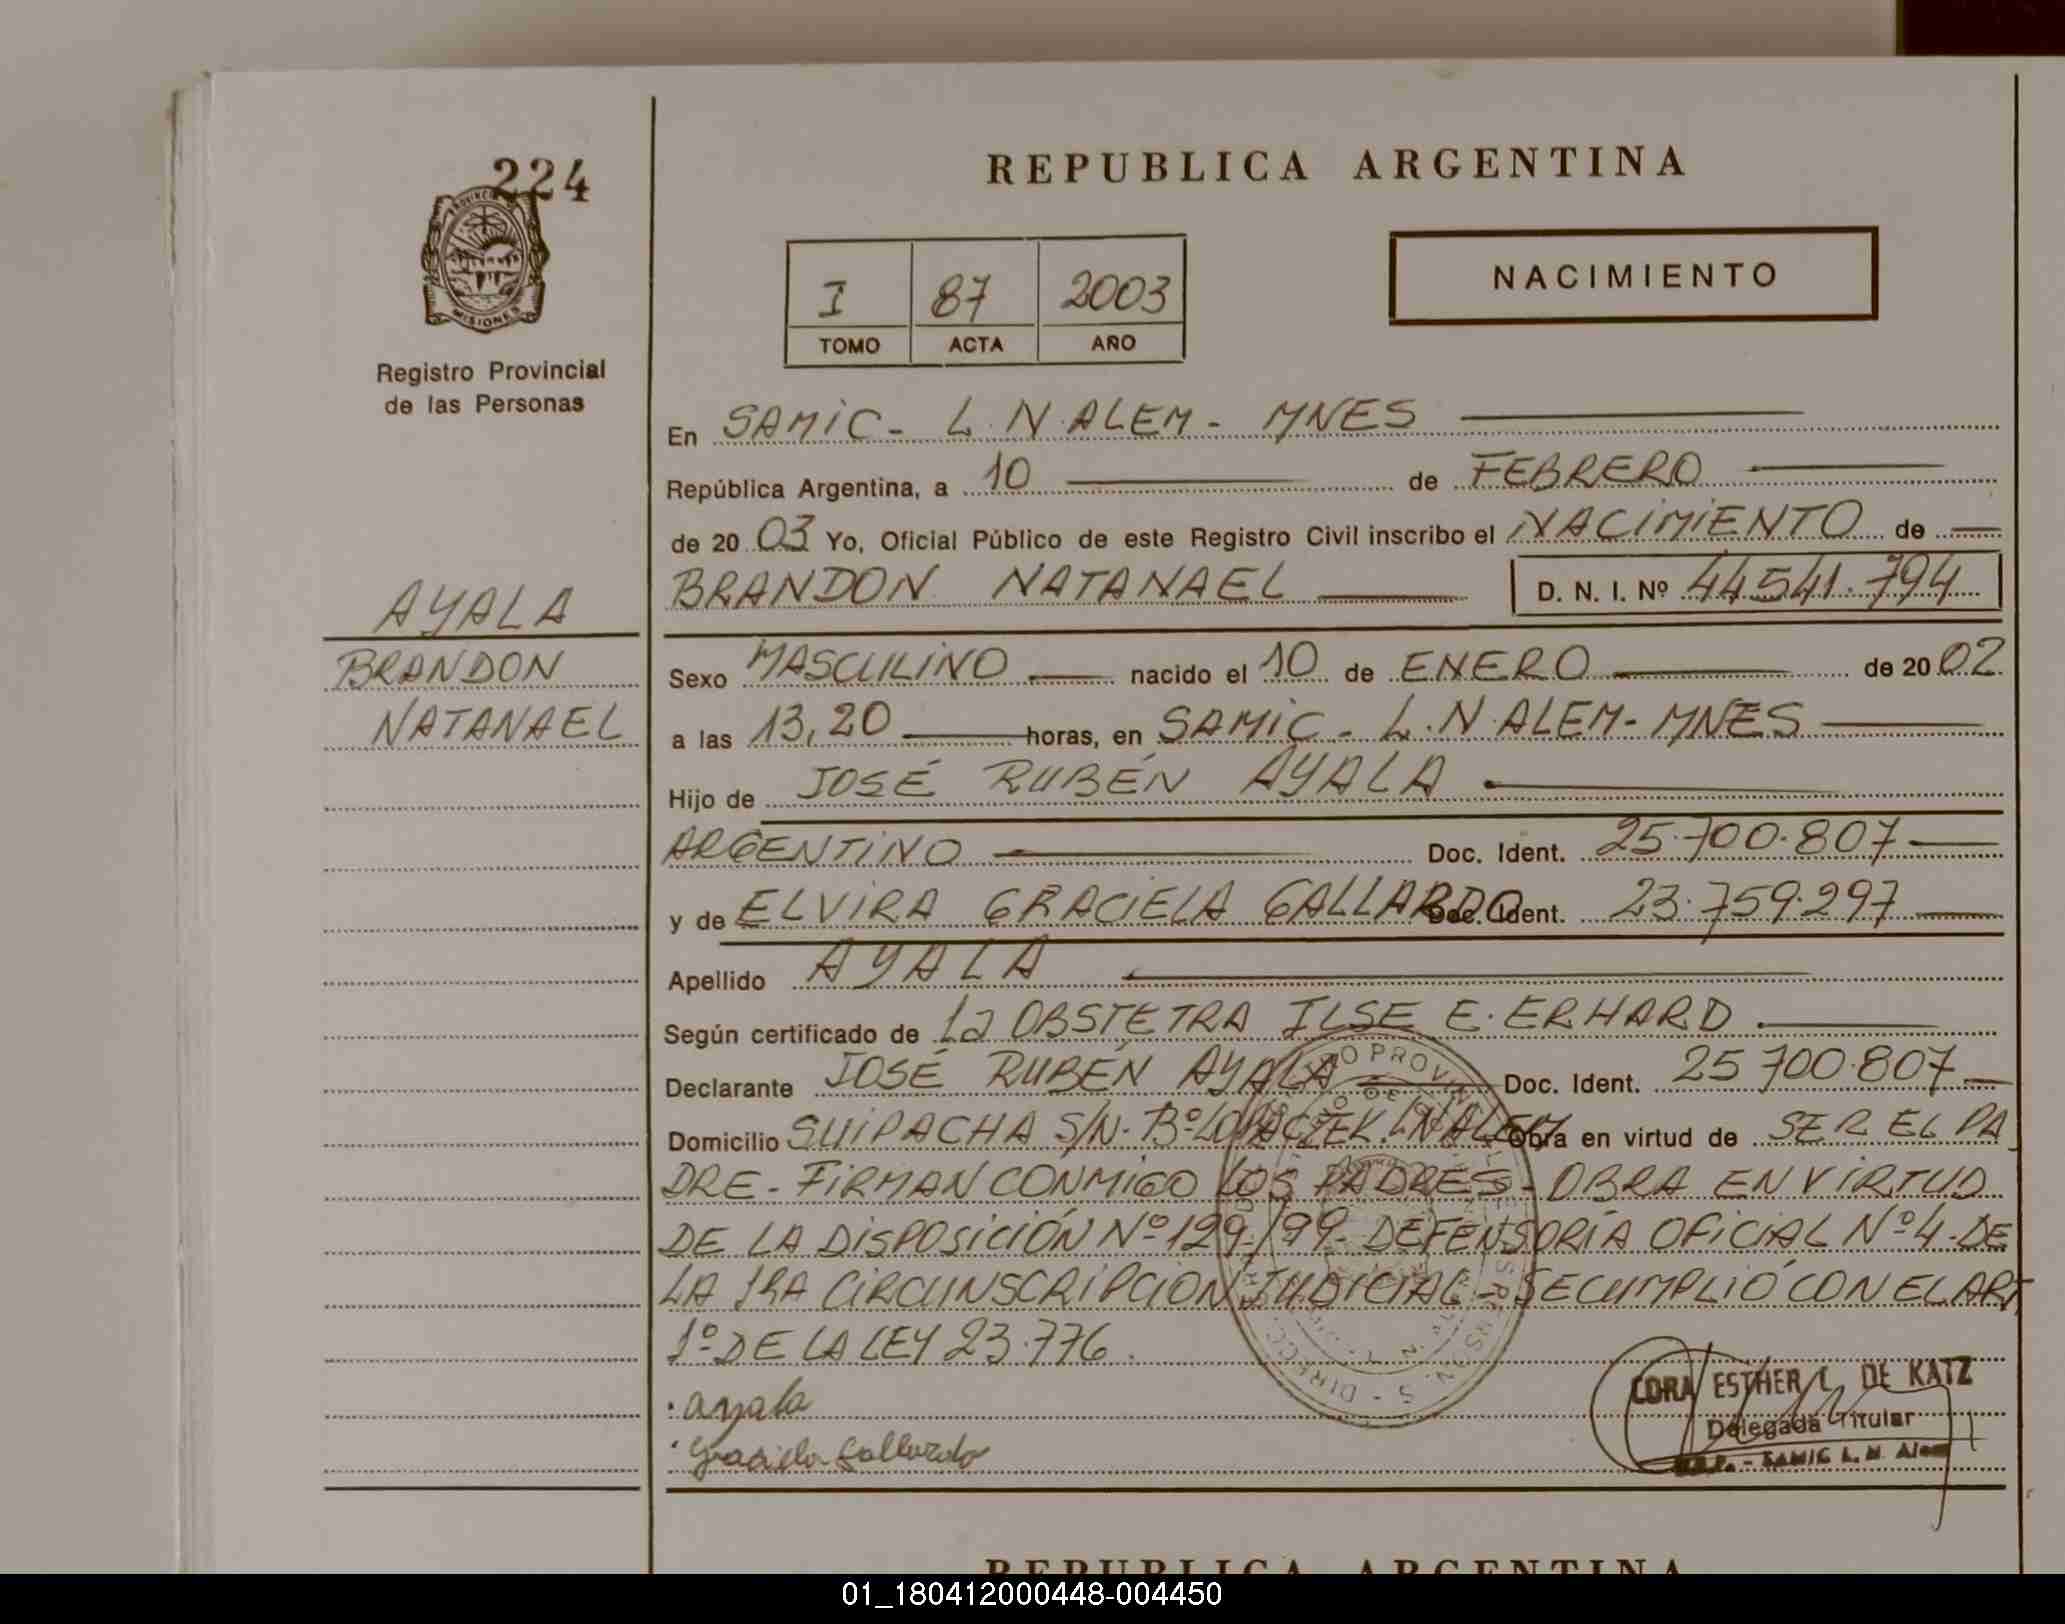 224
PROVINCIA
MISIONES
Registro Provincial
de las Personas
REPUBLICA ARGENTINA
NACIMIENTO
I 87 2003
TOMO ACTA AÑO
En SAMIC - L.N.ALEM - MNES
República Argentina, a 10 de FEBRERO
de 2003 Yo, Oficial Público de este Registro Civil inscribo el NACIMIENTO de
BRANDON NATANAEL D. N. I. Nº 44541.794
AYALA
BRANDON
NATANAEL
Sexo MASCULINO nacido el 10 de ENERO de 2002
a las 13,20 horas, en SAMIC - L.N.ALEM - MNES
Hijo de JOSÉ RUBÉN AYALA
ARGENTINO Doc. Ident. 25.700.807
y de ELVIRA GRACIELA GALLARDO Doc. Ident. 23.759.297
Apellido AYALA
Según certificado de La OBSTETRA ILSE E. ERHARD
Declarante JOSÉ RUBÉN AYALA Doc. Ident. 25 700.807
Domicilio SUIPACHA S/N. Bº LOPACZEK. L.N ALEM Obra en virtud de SER EL PA
DRE - FIRMAN CONMIGO LOS PADRES - OBRA EN VIRTUD
DE LA DISPOSICIÓN Nº 129/99 - DEFENSORÍA OFICIAL Nº 4 - DE
LA 1RA CIRCUNSCRIPCION JUDICIAL - SE CUMPLIÓ CON EL ART
1º DE LA LEY 23.776.
ayala
Graciela Gallardo
CORA ESTHER L. DE KATZ
Delegada Titular
SAMIC L. N. Alem
REPUBLICA ARGENTINA
01_180412000448-004450